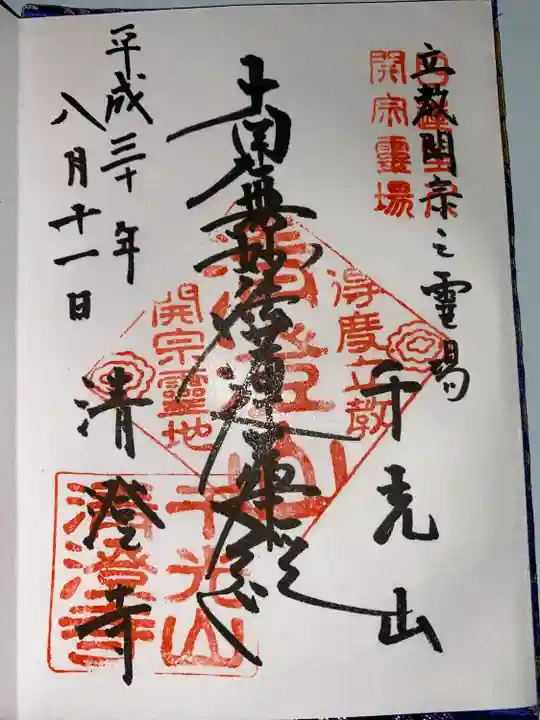 立教開宗之霊場
開宗霊場
千光山
得度立教
開宗霊地
清澄山
南無妙法蓮華経
平成三十年
八月十一日
清澄寺
千光山
清澄寺